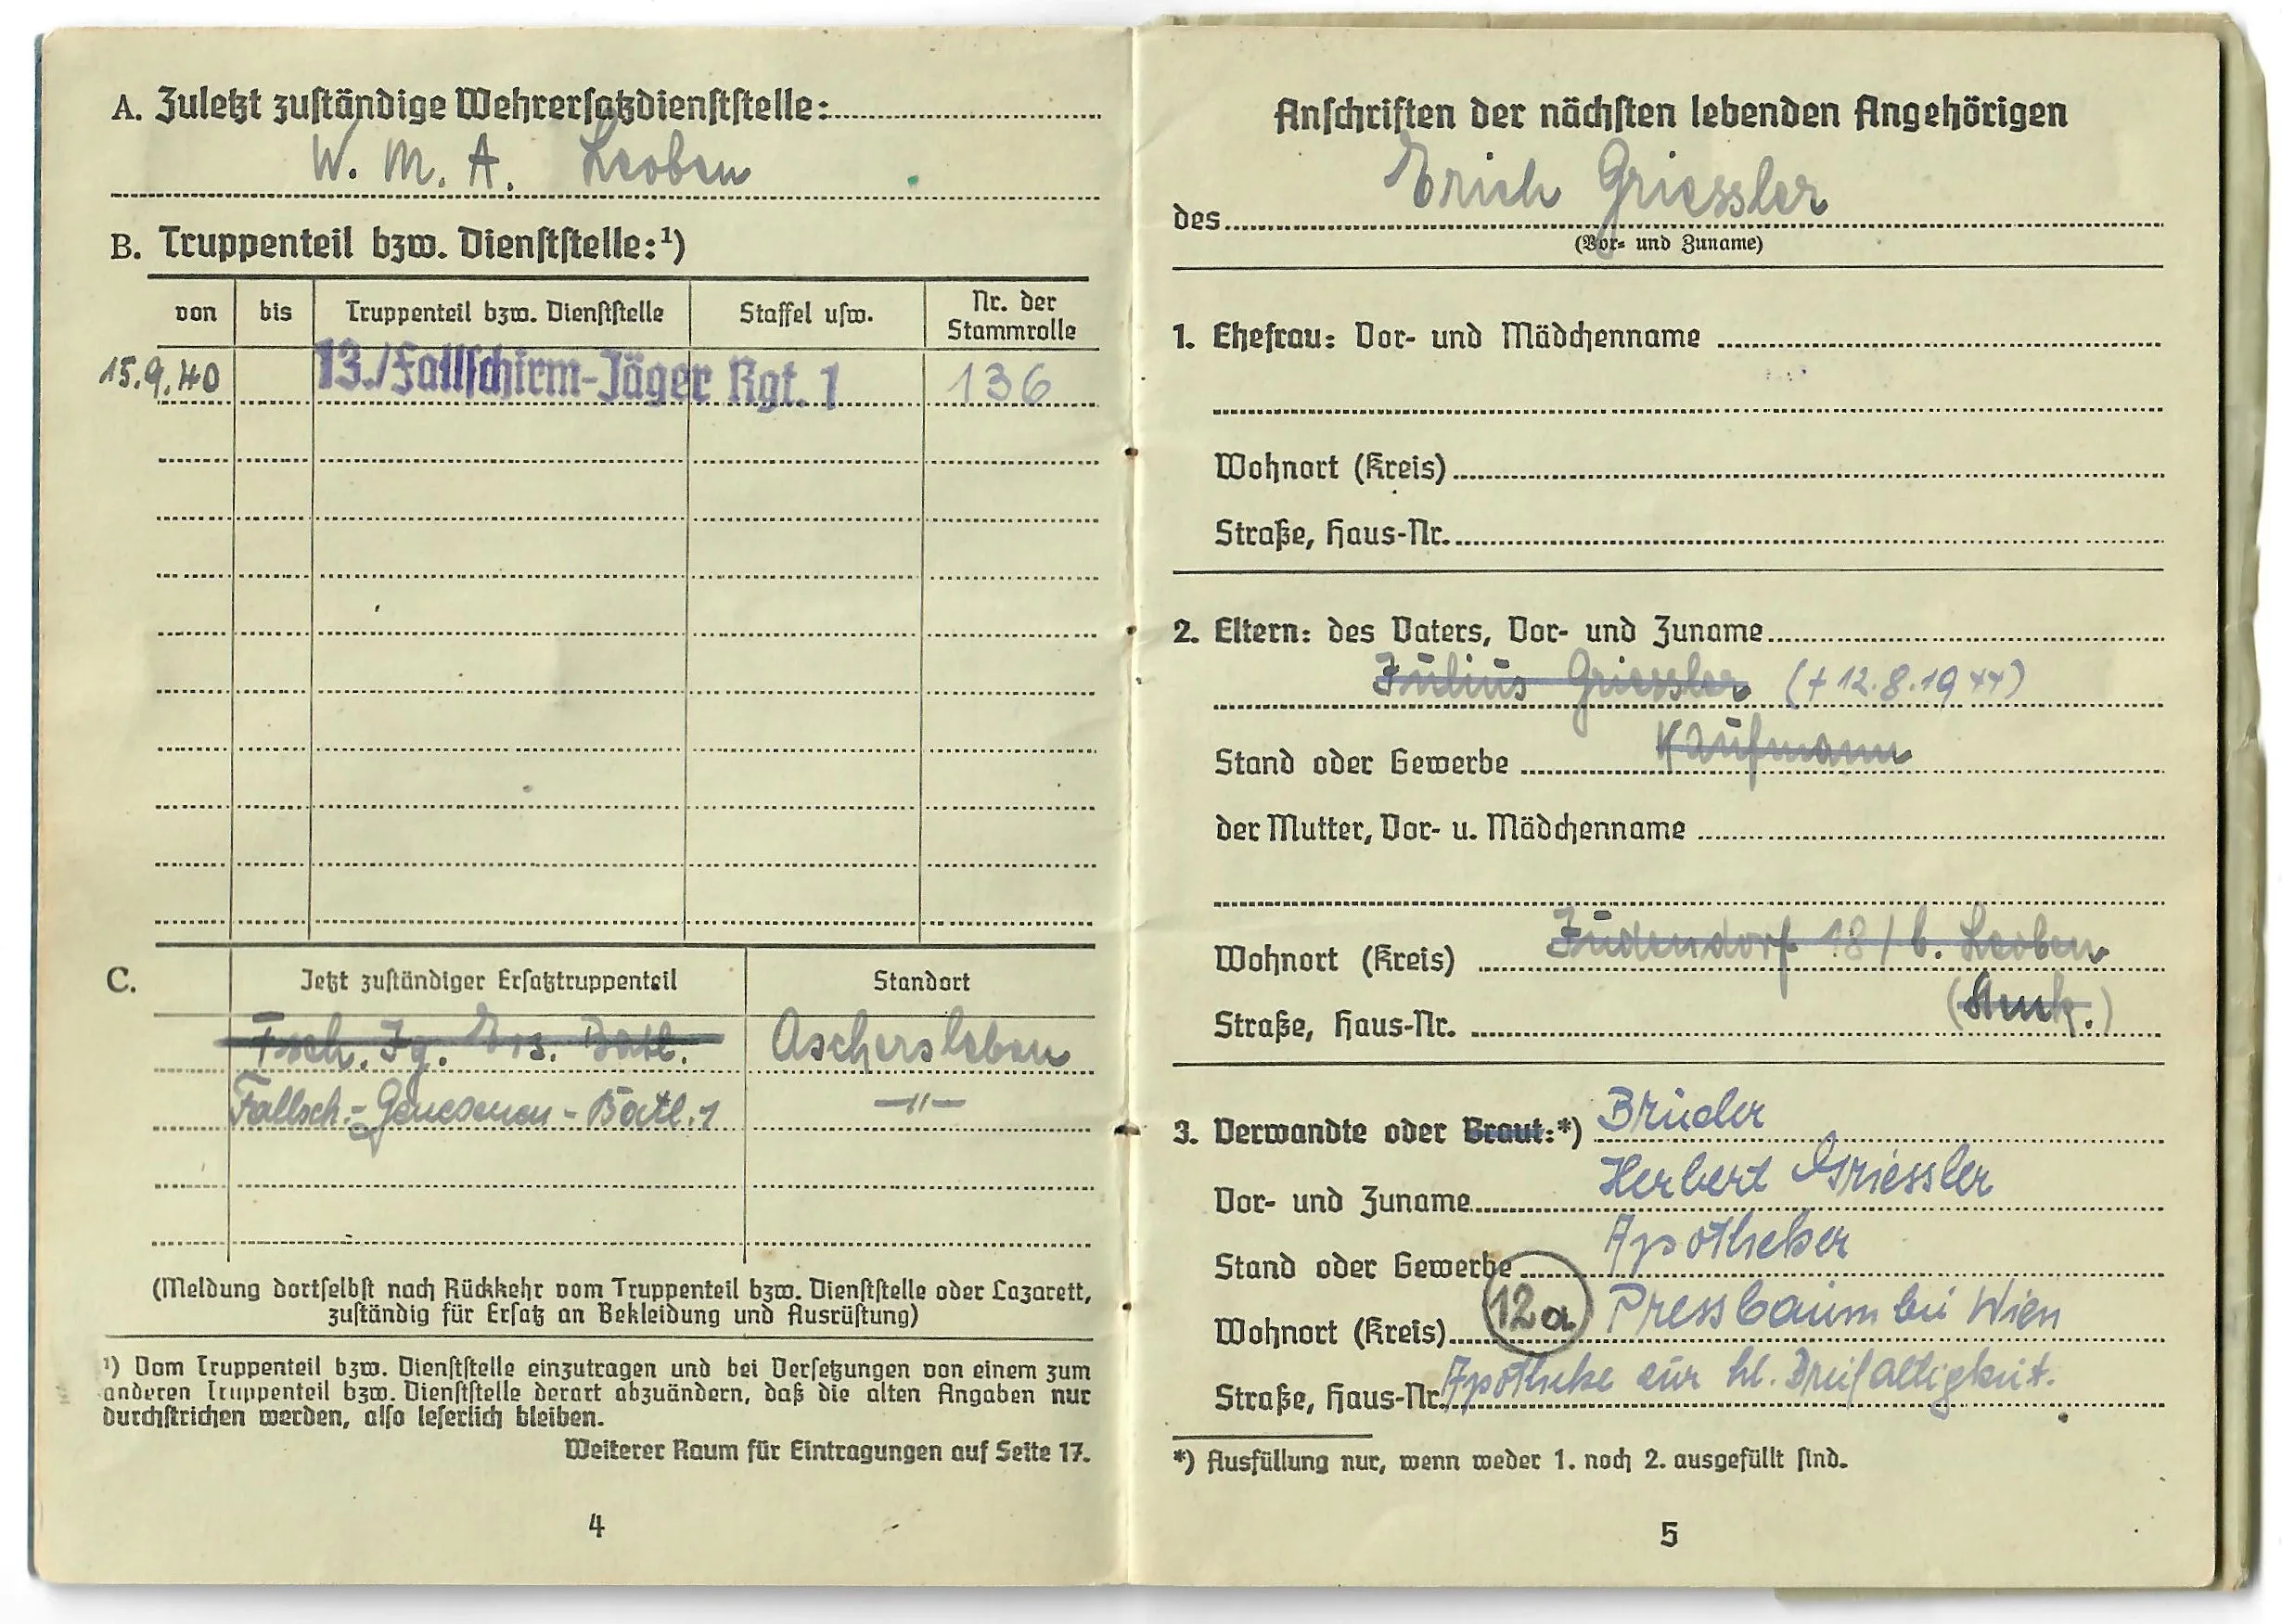 A. Zuletzt zuständige Wehrersatzdienststelle:
W. M. A. Leoben
B. Truppenteil bzw. Dienststelle:¹)
von bis Truppenteil bzw. Dienststelle Staffel usw. Nr. der Stammrolle
15.9.40 13./Fallschirm-Jäger Rgt. 1 136
C. Jetzt zuständiger Ersatztruppenteil Standort
Fsch. Jg. Ers. Batl. Aschersleben
Fallsch.-Genesenen-Batl. 1 —"—
(Meldung dortselbst nach Rückkehr vom Truppenteil bzw. Dienststelle oder Lazarett,
zuständig für Ersatz an Bekleidung und Ausrüstung)
¹) Vom Truppenteil bzw. Dienststelle einzutragen und bei Versetzungen von einem zum
anderen Truppenteil bzw. Dienststelle derart abzuändern, daß die alten Angaben nur
durchstrichen werden, also leserlich bleiben.
Weiterer Raum für Eintragungen auf Seite 17.
4
Anschriften der nächsten lebenden Angehörigen
des Erich Griessler
(Vor- und Zuname)
1. Ehefrau: Vor- und Mädchenname
Wohnort (Kreis)
Straße, Haus-Nr.
2. Eltern: des Vaters, Vor- und Zuname
Julius Griessler (+ 12.8.1944)
Stand oder Gewerbe Kaufmann
der Mutter, Vor- u. Mädchenname
Wohnort (Kreis) Judendorf 18 / b. Leoben
Straße, Haus-Nr.
3. Verwandte oder Braut:*) Bruder
Vor- und Zuname Herbert Griessler
Stand oder Gewerbe Apotheker
Wohnort (Kreis) 12a Pressbaum bei Wien
Straße, Haus-Nr. Apotheke zur hl. Dreifaltigkeit.
*) Ausfüllung nur, wenn weder 1. noch 2. ausgefüllt sind.
5